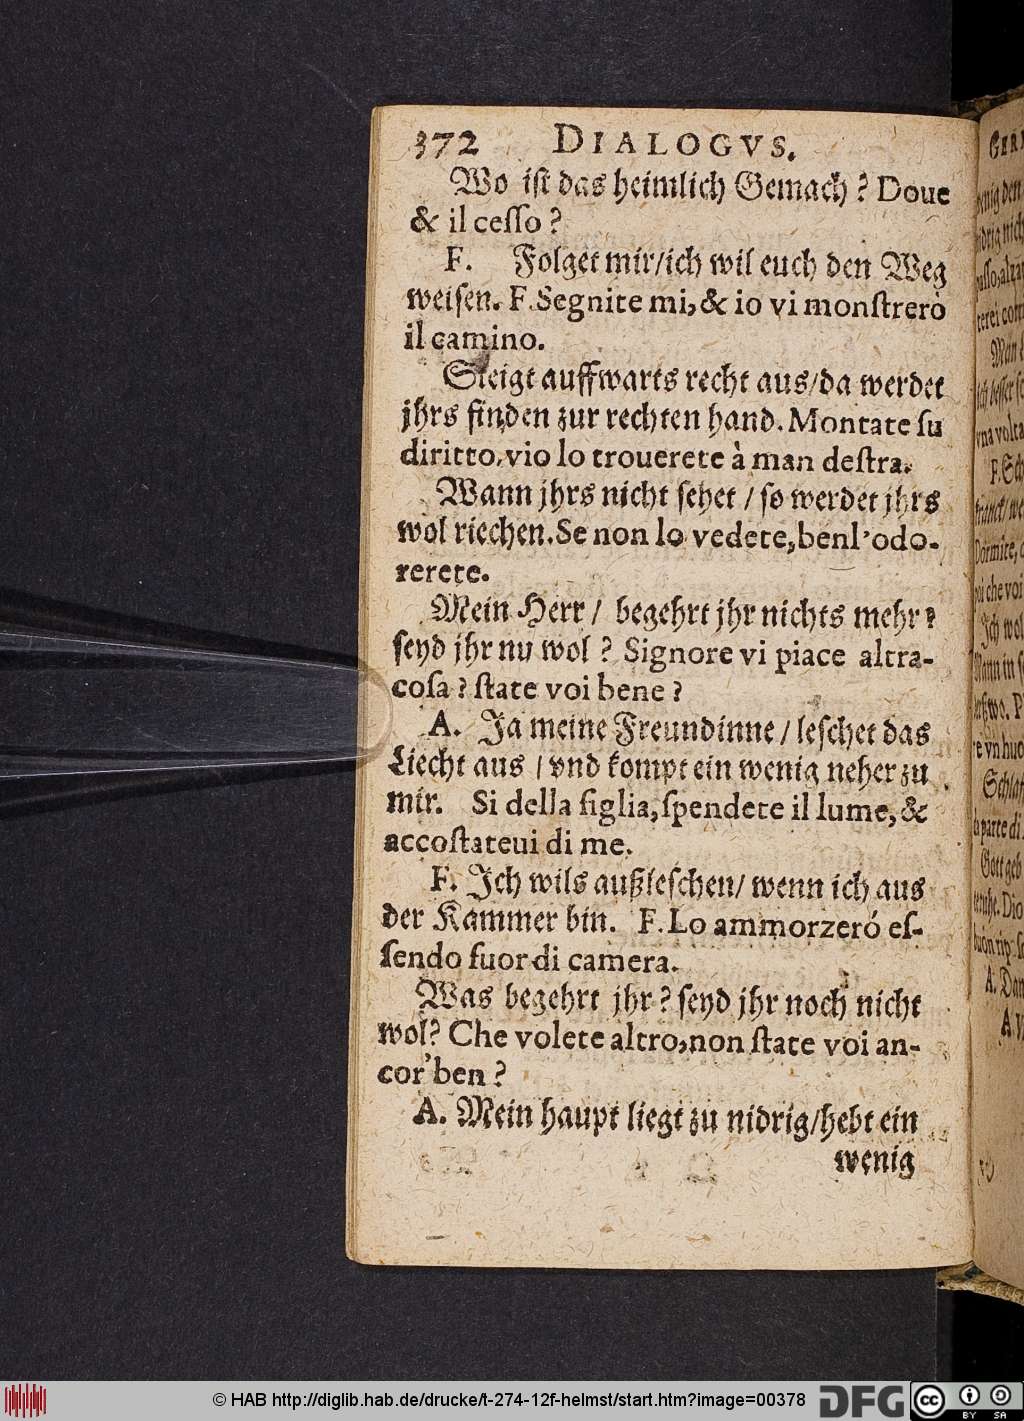 372 DIALOGVS.
Wo iſt das heimlich Gemach? Doue
& il ceſſo?
F. Folget mir/ich wil euch den Weg
weiſen. F. Segnite mi, & io vi monſtrerò
il camino.
Steigt auffwarts recht aus/da werdet
jhrs finden zur rechten hand. Montate ſu
diritto, vio lo trouerete à man deſtra.
Wann jhrs nicht ſehet / ſo werdet jhrs
wol riechen. Se non lo vedete, benl'odo-
rerete.
Mein Herr / begehrt jhr nichts mehr?
ſeyd jhr nu wol? Signore vi piace altra-
coſa? ſtate voi bene?
A. Ja meine Freundinne / leſchet das
Liecht aus / vnd kompt ein wenig neher zu
mir. Si della figlia, ſpendete il lume, &
accoſtateui di me.
F. Ich wils außleſchen/ wenn ich aus
der Kammer bin. F. Lo ammorzeró eſ-
ſendo fuor di camera.
Was begehrt jhr? ſeyd jhr noch nicht
wol? Che volete altro, non ſtate voi an-
cor' ben?
A. Mein haupt liegt zu nidrig/hebt ein
wenig
© HAB http://diglib.hab.de/drucke/t-274-12f-helmst/start.htm?image=00378
DFG
cc BY SA